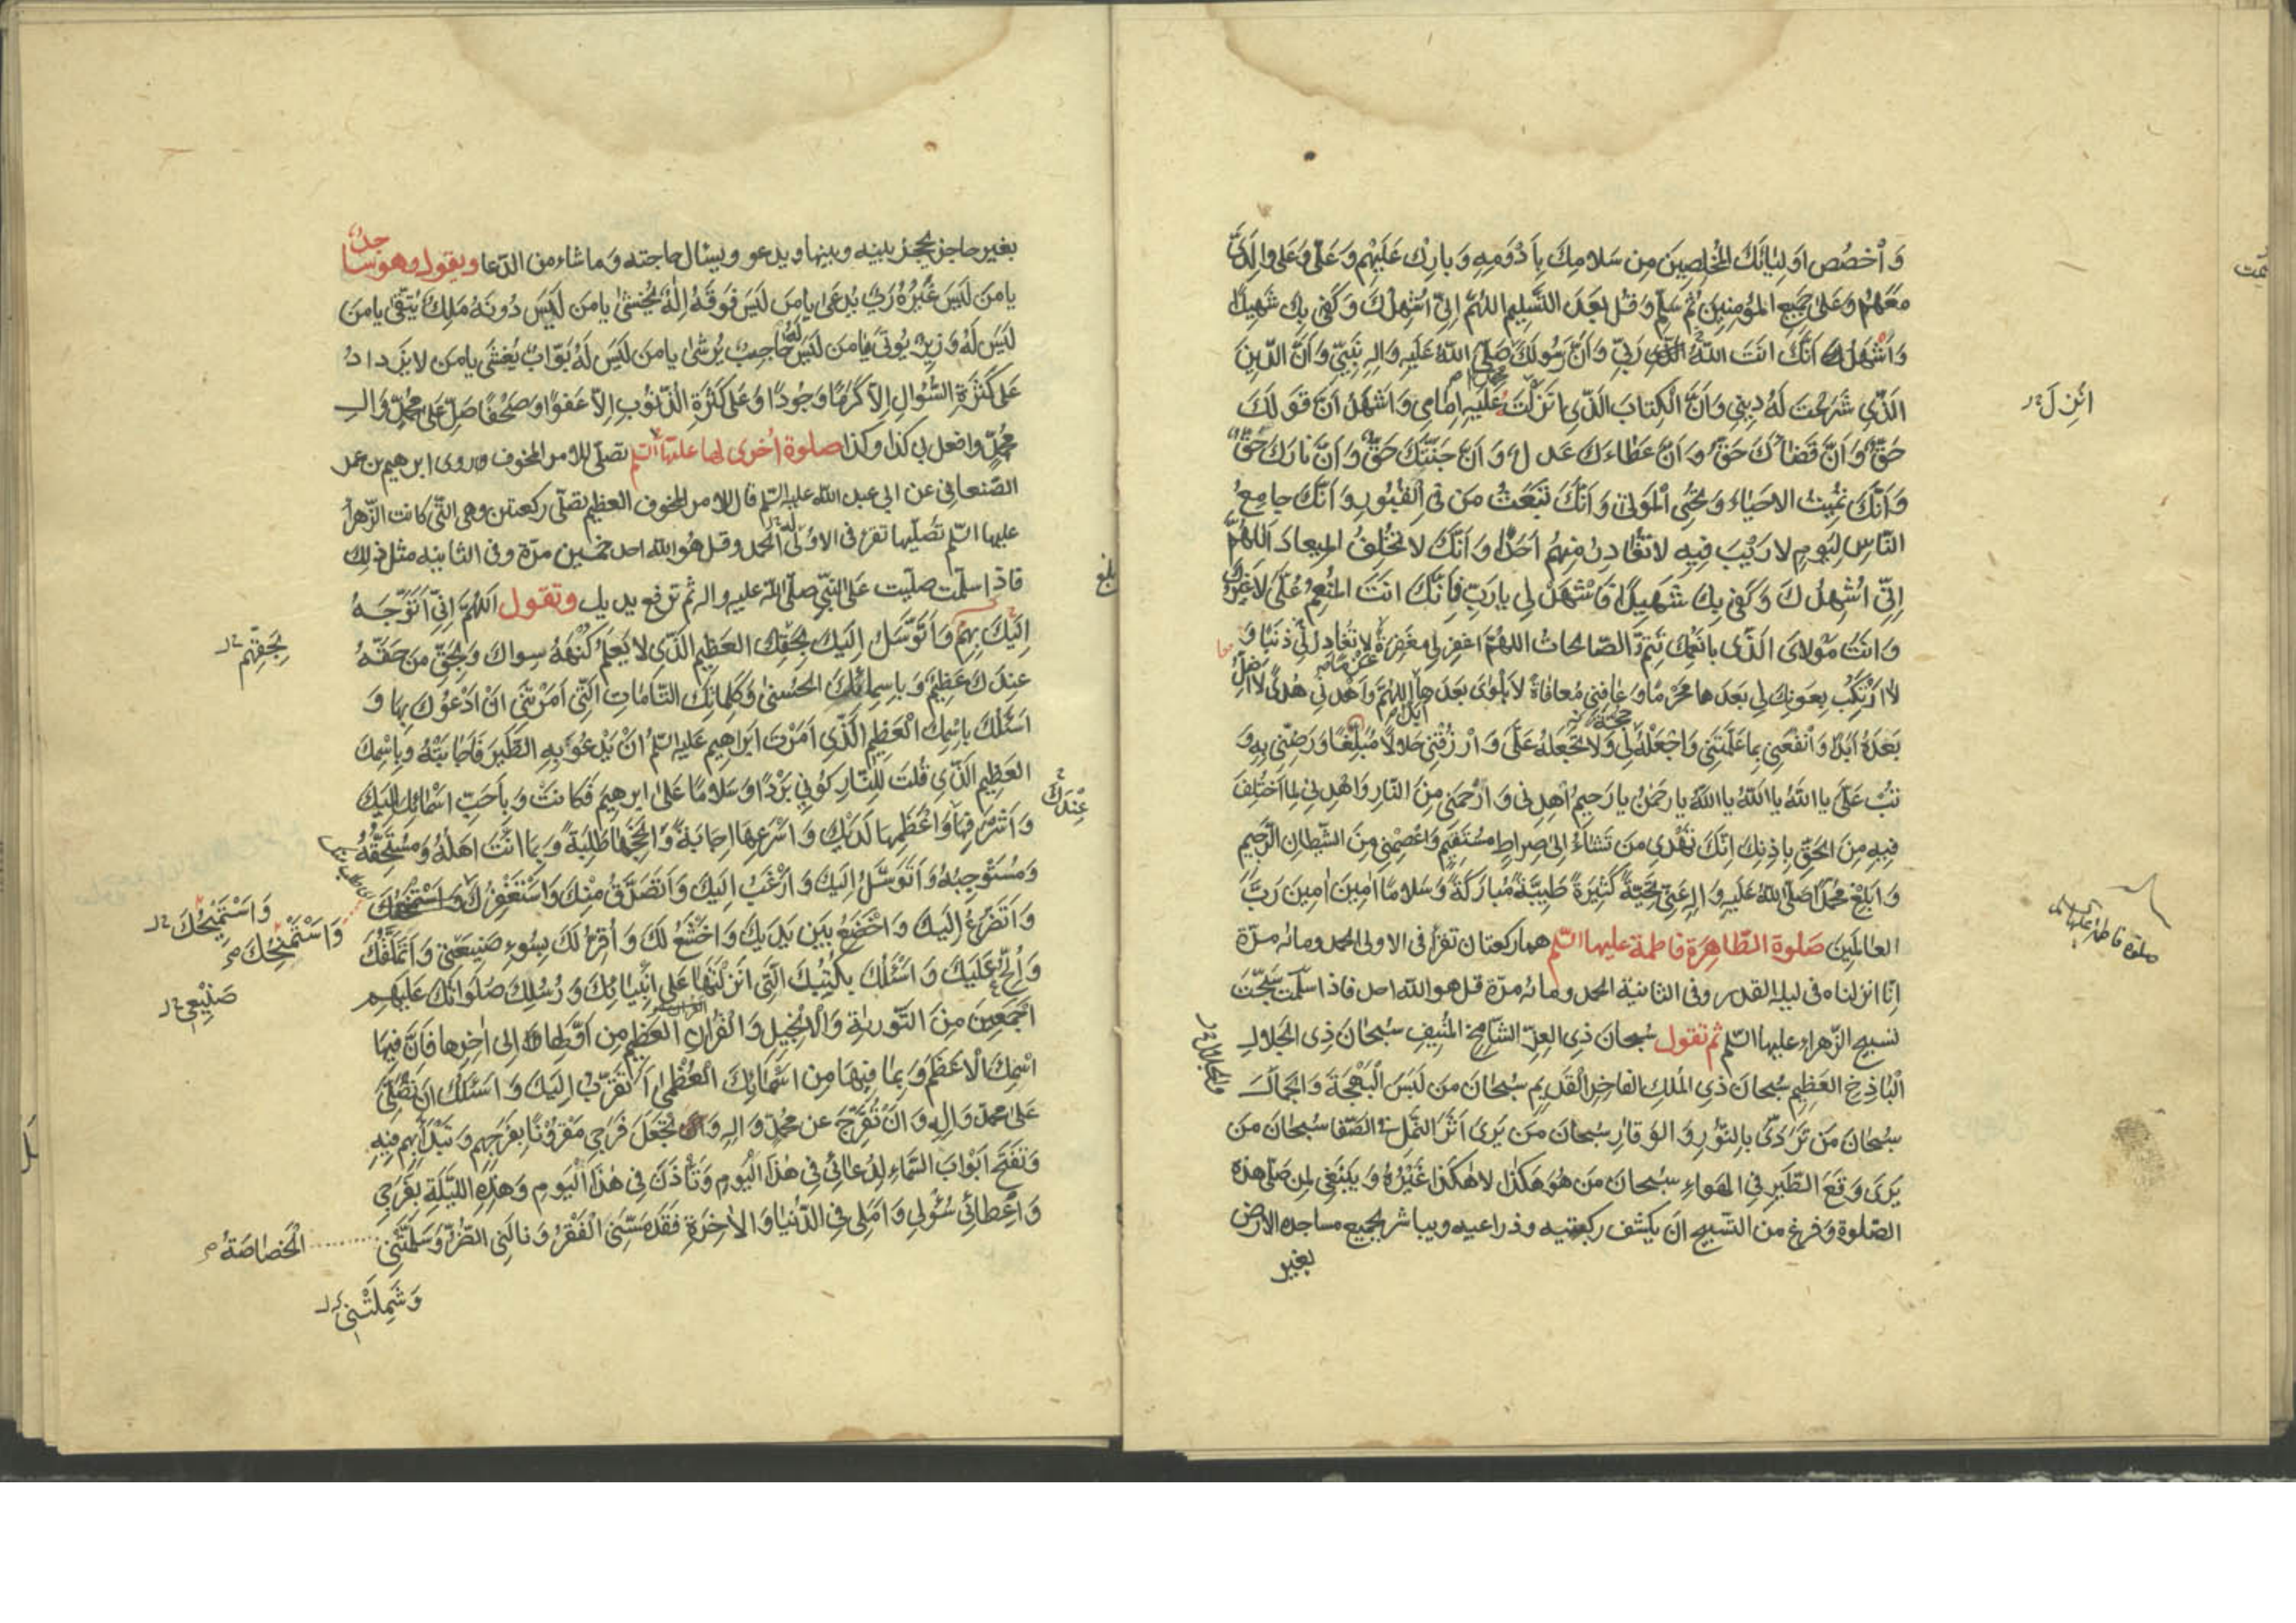 وَاْخصُص اَولِيٰائَكَ المُخلِصِينَ مِن سَلامِكَ بِاَدْوَمِهِ وَبارِكْ عَلَيْهِم وَعَلَىَّ وَعَلىٰ والِدَىَّ
مَعَهُم وَعَلىٰ جَميعِ المؤمِنينَ ثُمَّ سَلِّم وَقُل بَعدَ التَّسليم اللهُمَّ اِنّى اُشهِدُكَ وَكَفىٰ بِكَ شَهيدًا
وَاَشهَدُ اَنَّكَ اَنتَ اللهُ رَبّى وَاَنَّ رَسولَكَ صَلَّى اللهُ عَلَيهِ وَالِهِ نَبِيّى وَاَنَّ الدّينَ
الَّذى شَرَعتَ لَهُ دِينى وَاَنَّ الكِتابَ الَّذى اَنزَلْتَ عَلَيهِ اِمامى وَاَشهَدُ اَنَّ قَولَكَ
حَقٌّ وَاَنَّ قَضاءَكَ حَقٌّ وَاَنَّ عَطاءَكَ عَدلٌ وَاَنَّ جَنَّتَكَ حَقٌّ وَاَنَّ نارَكَ حَقٌّ
وَاَنَّكَ تُميتُ الاَحياءَ وَتُحيِى المَوتىٰ وَاَنَّكَ تَبعَثُ مَن فِى القُبُورِ وَاَنَّكَ جامِعُ
النّاسِ لِيَومٍ لا رَيْبَ فِيهِ لا تُغادِرُ مِنهُم اَحَدًا وَاَنَّكَ لا تُخلِفُ الميعادَ اَللٰهُمَّ
اِنّى اُشهِدُكَ وَكَفىٰ بِكَ شَهيدًا فَاشْهَدْ لى يا رَبِّ فَاِنَّكَ اَنتَ المُنعِمُ عَلَىَّ لا غَيرُكَ
وَاَنتَ مَولاىَ الَّذى بِاَنعُمِكَ تَتِمُّ الصّالِحاتُ اللهُمَّ اغفِر لى مَغفِرَةً لا تُغادِرُ لى ذَنبًا وَ
لا اَرْتَكِبُ بِعَونِكَ لى بَعدَها مُحَرَّمًا وَعافِنى مُعافاةً لا بَلوىٰ بَعدَها اَللهُمَّ وَاهدِنى هُدًى لا اَضِلُّ
بَعدَهُ اَبَدًا وَانْفَعْنِى بِما عَلَّمتَنى وَاجْعَلْهُ لى وَلا تَجعَلهُ عَلَىَّ وَارْزُقْنِى حَلالًا مُبَلِّغًا وَرَضِّنى بِهِ وَ
تُب عَلَىَّ يا اَللهُ يا اَللهُ يا اَللهُ يا رَحمٰنُ يا رَحِيمُ اهدِنى وَارحَمنى مِنَ النّارِ وَاهدِنى لِما اختُلِفَ
فيهِ مِنَ الحَقِّ بِاِذنِكَ اِنَّكَ تَهدى مَن تَشاءُ اِلىٰ صِراطٍ مُستَقيمٍ وَاعصِمْنى مِنَ الشَّيطانِ الرَّجيمِ
وَابلِغْ مُحَمَّدًا صَلَّى اللهُ عَلَيهِ وَالِهِ عَنّى تَحِيَّةً كَثيرَةً طَيِّبَةً مُبارَكَةً وَسَلامًا امينَ امينَ رَبَّ
العالَمينَ صَلوة الطّاهِرَة فاطمة عليها السّلم هما ركعتان تقرأ فى الاولى الحمد ومائه مرّة
اِنّا انزلناه فى ليلة القدر وفى الثانية الحمد ومائه مرّة قل هو الله احد فاذا سلّمت سبّحت
تسبيح الزّهراء عليها السّلم ثم تقول سُبحانَ ذِى العِزِّ الشّامِخِ المُنيفِ سُبحانَ ذِى الجَلالِ
الْباذِخِ العَظيمِ سُبحانَ ذِى المُلكِ الفاخِرِ القَديمِ سُبحانَ مَن لَبِسَ الْبَهْجَةَ وَالجَمالَ
سُبحانَ مَن تَرَدّىٰ بِالنُّورِ وَالوَقارِ سُبحانَ مَن يَرى اَثَرَ النَّملِ فى الصَّفا سُبحانَ مَن
يَرىٰ وَقعَ الطَّيرِ فِى الهَواءِ سُبحانَ مَن هُوَ هٰكَذا لا هٰكَذا غَيْرُهُ وَيَنبَغى لمن صَلّى هذه
الصّلوة وَفرغ من التّسبيح ان يكشف ركبتيه وذراعيه ويباشر بجميع مساجده الارض
بغير
انزِلَ
صلوة فاطمة عليها السلام
بغير حاجز يحجز بينه وبينها ويدعو ويسئال حاجته وَما شاء من الدّعا ويقول وهو ساجدٌ
يا مَن لَيسَ غَيْرُهُ رَبٌّ يُدعىٰ يا مَن لَيسَ فَوقَهُ اِلٰهٌ يُخشىٰ يا مَن لَيسَ دُونَهُ مَلِكٌ يُتَّقىٰ يا مَن
لَيسَ لَهُ وَزيرٌ يُؤتىٰ يا مَن لَيسَ لَهُ حاجِبٌ يُرشىٰ يا مَن لَيسَ لَهُ بَوّابٌ يُغشىٰ يا مَن لا يَزدادُ
عَلىٰ كَثرَةِ السُّؤالِ اِلاّ كَرَمًا وَجُودًا وَعَلىٰ كَثرَةِ الذُّنُوبِ اِلاّ عَفوًا وَصَفحًا صَلِّ عَلىٰ مُحَمَّدٍ وَالِ
مُحَمَّدٍ وَافعل بى كذا وكذا صلوة اُخرى لها عليها السّلم تصلّى للامر المخوف وروى ابرهيم بن عمر
الصّنعانى عن ابى عبد الله عليه السّلم قال للامر المخوف العظيم تصلّى ركعتين وهى التّى كانت الزّهراء
عليها السّلم تصلّيها تقرء فى الاولى الحمد وقل هو الله احد خمسين مرّة وفى الثانيه مثل ذلك
فاذا سلّمت صلّيت عَلى النّبىّ صلّى الله عليه واله ثم ترفع يديك وتقول اَللهُمَّ اِنّى اَتَوَجَّهُ
اِلَيْكَ بِهِمْ وَاَتَوَسَّلُ اِلَيكَ بِحَقِّكَ العَظيمِ الَّذى لا يَعلَمُ كُنْهَهُ سِواكَ وَبِحَقِّ مَن حَقُّهُ
عِندَكَ عَظيمٌ وَبِاَسمائِكَ الحُسنىٰ وَكَلِماتِكَ التّامّاتِ الَّتى اَمَرْتَنى اَنْ اَدْعُوكَ بِها وَ
اَسئَلُكَ بِاسْمِكَ الْعَظيمِ الَّذى اَمَرْتَ اِبراهيمَ عَلَيهِ السّلمُ اَنْ يَدْعُوَ بِهِ الطَّيرَ فَاَجابَتْهُ وَبِاسْمِكَ
العَظيمِ الَّذى قُلتَ لِلنّارِ كُونى بَرْدًا وَسَلامًا عَلىٰ ابرهيمَ فَكانَتْ وَبِاَحَبِّ اَسْمائِكَ اِلَيكَ
وَاَشْرَفِها وَاَعْظَمِها لَدَيْكَ وَاَسْرَعِها اِجابَةً وَاَنجَحِها طَلِبَةً وَبِما اَنْتَ اَهلُهُ وَمُستَحِقُّهُ
وَمُستَوجِبُهُ وَاَتَوَسَّلُ اِلَيكَ وَاَرْغَبُ اِلَيكَ وَاَتَصَدَّقُ مِنْكَ وَاَستَغفِرُكَ
وَاَتَضَرَّعُ اِلَيكَ وَاَخْضَعُ بَينَ يَدَيكَ وَاَخشَعُ لَكَ وَاُقِرُّ لَكَ بِسُوءِ صَنيعَتى وَاَتَمَلَّقُكَ
وَاُلِحُّ عَلَيكَ وَاَسْئَلُكَ بِكُتُبِكَ الَّتى اَنزَلْتَها عَلىٰ اَنْبِيائِكَ وَرُسُلِكَ صَلَواتُكَ عَلَيهِم
اَجْمَعينَ مِنَ التَّورٰيةِ وَالْاِنْجيلِ وَالْقُرانِ العَظيمِ مِن اَوَّلِها اِلى اٰخِرِها فَاِنَّ فيهَا
اسْمَكَ الْاَعظَمَ وَبِما فيها مِن اَسْمائِكَ الْعُظْمىٰ اَتَقَرَّبُ اِلَيكَ وَاَسئَلُكَ اَن تُصَلِّىَ
عَلىٰ محمّدٍ وَالِهِ وَاَنْ تُفَرِّجَ عَن مُحَمَّدٍ وَالِهِ وَتَجْعَلَ فَرَجى مَقرُونًا بِفَرَجِهِم وَتَبْدَأَ بِهِم فيهِ
وَتَفتَحَ اَبْوابَ السَّماءِ لِدُعائى فى هٰذَا الْيَومِ وَتَأْذَنَ فى هٰذَا الْيَومِ وَهٰذِهِ اللَّيلَةِ بِفَرَجى
وَاِعْطائى سُؤْلى وَاَمَلى فِى الدُّنيا وَالاٰخِرَةِ فَقَد مَسَّنِىَ الْفَقْرُ وَنالَنى الضُّرُّ وَسَلَّمَتْنى
بِحَقِّهِم
عِنْدَكَ
وَاَسْتَميحُكَ
وَاَسْتَمْنِحُكَ
صَنيعى
الْخَصاصَةُ
وَشَمِلَتْنى